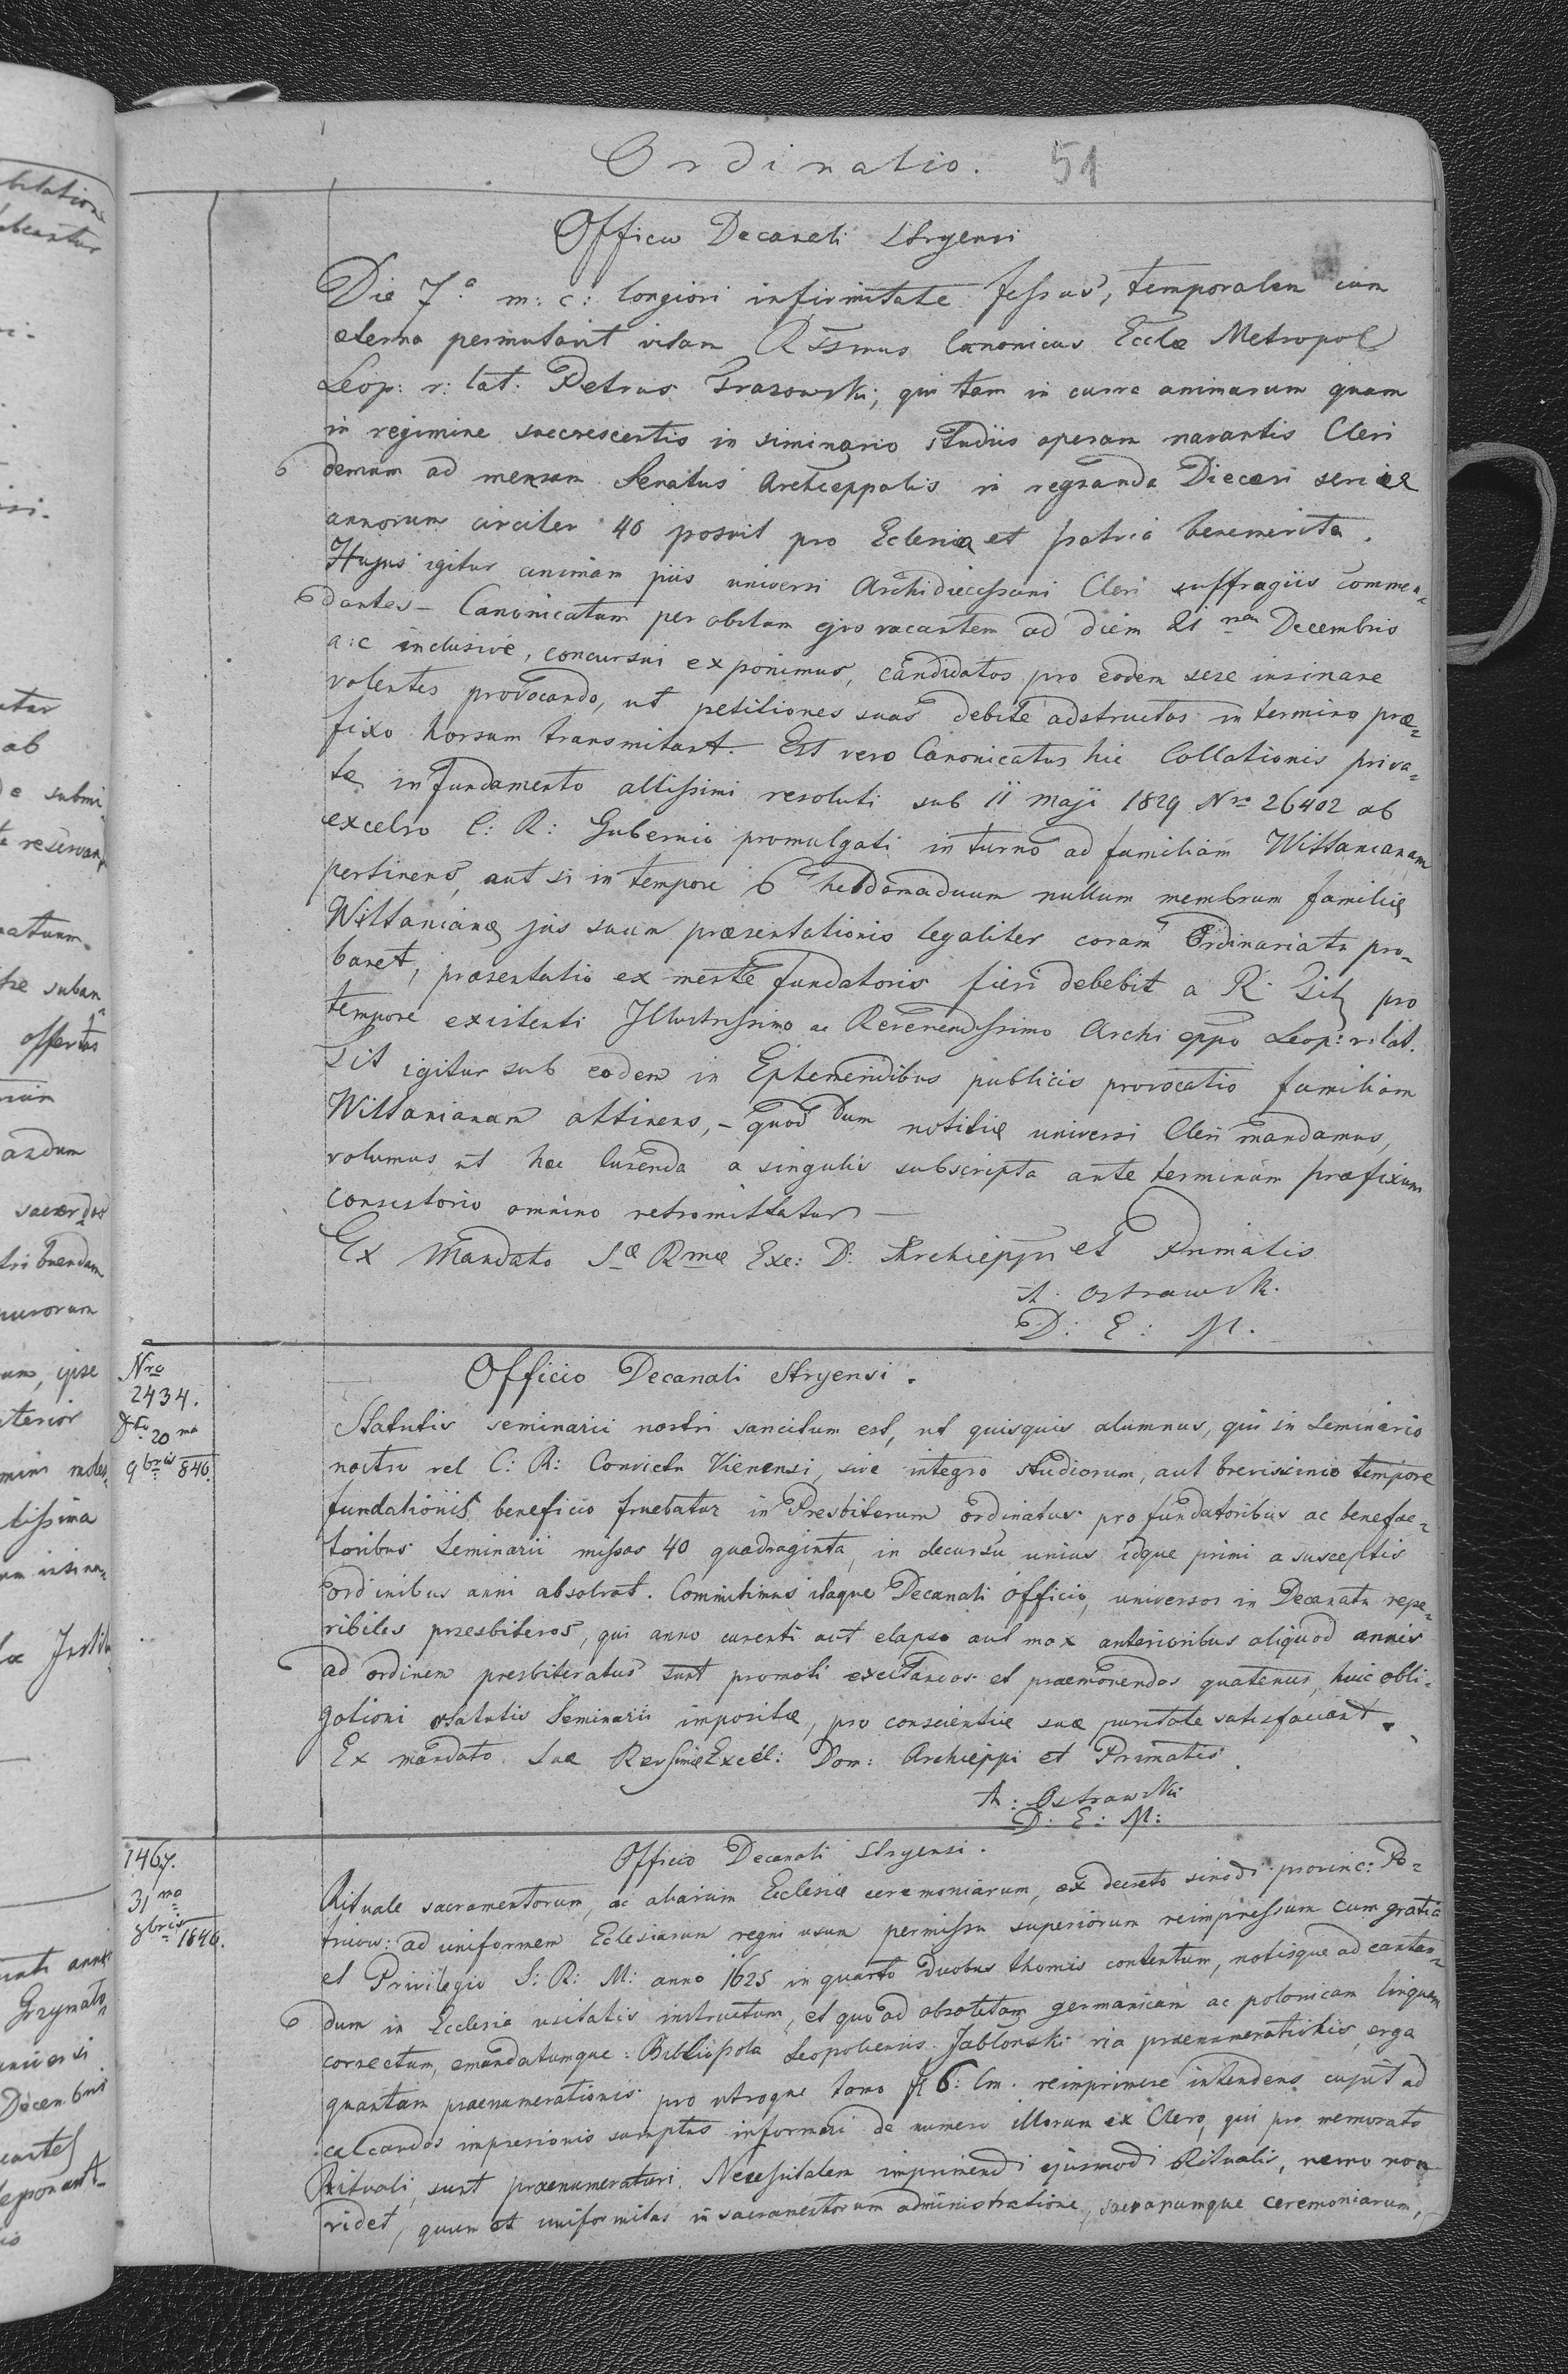 Ordinatio. 51
Officio Decanali Stryensi
Die 7.a m: c: longiori infirmitate fessus, temporalem cum
æterna permutavit vitam Rssmus Canonicus Ecclæ Metropol
Leop: r: lat. Petrus Grazowski, qui tam in curre animarum quam
in regimine succrescentis in siminario studiis operam navantis Cleri
demum ad mensam Senatus Archieppalis in regnanda Diecæsi seriæ
annorum circiter 40 posuit pro Eclesia et patria benemerita.
Hujus igitur animam piis universi Archidiecessani Cleri suffragiis commen-
dantes – Canonicatum per obitum ejus vacantem ad diem 21 mam Decembris
a: c inclusive, concursui exponimus, candidatos pro eodem sese insinare
volentes provocando, ut petitiones suas debite adstructas in termino præ-
fixo horsum transmitant. Est vero Canonicatus hic Collationis priva-
tæ in fundamento altissimi resoluti sub 11 Maji 1829 Nro 26402 ab
excelso C: R: Gubernio promulgati in turno ad familiam Wittanianam
pertinens, aut si in tempore 6 hebdomaduum nullum membrum familiæ
Wittanianæ jus suum præsentationis legaliter coram Ordinariatu pro-
baret, præsentatio ex mente fundatoris fieri debebit a R. Tit pro
tempore existenti Illustrissimo ac Reverendissimo Archi eppo Leop: r: lat.
Sit igitur sub eodem in Ephemeridibus publicis provocatio familiam
Wittanianam attinens, – quod dum notitiæ universi Cleri mandamus,
volumus ut hæ Curenda a singulis subscripta ante terminum præfixum
consistorio omnino retromittatur –
Ex Mandato Sæ Rmæ Exc: D: Archieppi et Primatis
A. Ostrawski.
D: E: M.
Nro
2434.
Dto 20 ma
9bris 846.
Officio Decanali Stryensi.
Statutis seminarii nostri sancitum est, ut quisquis alumnus, qui in Seminario
nostro vel C: R: Convictu Vienensi, sive integro studiorum, aut brevissimio tempore
fundationis beneficio fruebatur in Presbiterum ordinatus pro fundatoribus ac benefac-
toribus Seminarii missas 40 quadraginta, in decursu unius idque primi a susceptis
ordinibus anni absolvat. Committimus itaque Decanali Officio, universos in Decanatu repe-
ribiles præsbiteros, qui anno curenti aut elapso aut mox anterioribus aliquod annis
ad ordinem presbiteratus sunt promoti excitandos et praemonendos quatenus, huic obli-
gationi statutis Seminarii impositæ, pro conscientiæ suæ puritate satisfaciant.
Ex mandato Suæ Revsimæ Excel: Dom: Archieppi et Primatis.
A: Ostrawski
D: E: M:
1467.
31 ma
8bris 1846.
Officio Decanali Stryensi.
Rituale sacramentorum, ac aliarum Ecclesiæ ceremoniarum, ex decreto sinodi provinc: Pe-
tricov: ad uniformem Eclesiarum regni usum permissu superiorum reimpressum cum gratia
et Privilegio S: R: M: anno 1625 in quarto duobus thomis contentum, notisque ad cantan-
dum in Ecclesia usitatis instructum, et quo ad obsoletam germanicam ac polonicam linguam
correctum, emandatumque: Bibliopola Leopoliensis Jablonski via praenumerationis, erga
quantam praenumerationis pro utroque tomo fl 6: Cm. reimprimere intendens cupit ad
calcandos impresionis sumptus informari de numero illorum ex Clero, qui pro memorato
Rituali sunt praenumeraturi. Necessitatem imprimendi ejusmodi Ritualis, nemo non
videt, quum et uniformitas in sacramentorum administratione, sacrarumque ceremoniarum,